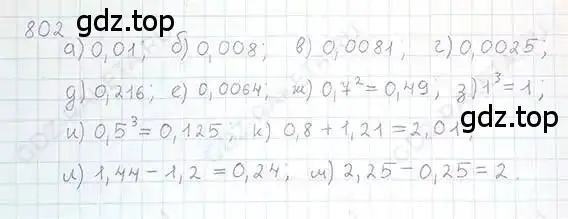 gdz.top
802
а) 0,01; б) 0,008; в) 0,0081; г) 0,0025;
д) 0,216; е) 0,0064; ж) 0,7² = 0,49; з) 1³ = 1;
и) 0,5³ = 0,125; к) 0,8 + 1,21 = 2,01;
gdz.top
л) 1,44 - 1,2 = 0,24; м) 2,25 - 0,25 = 2.